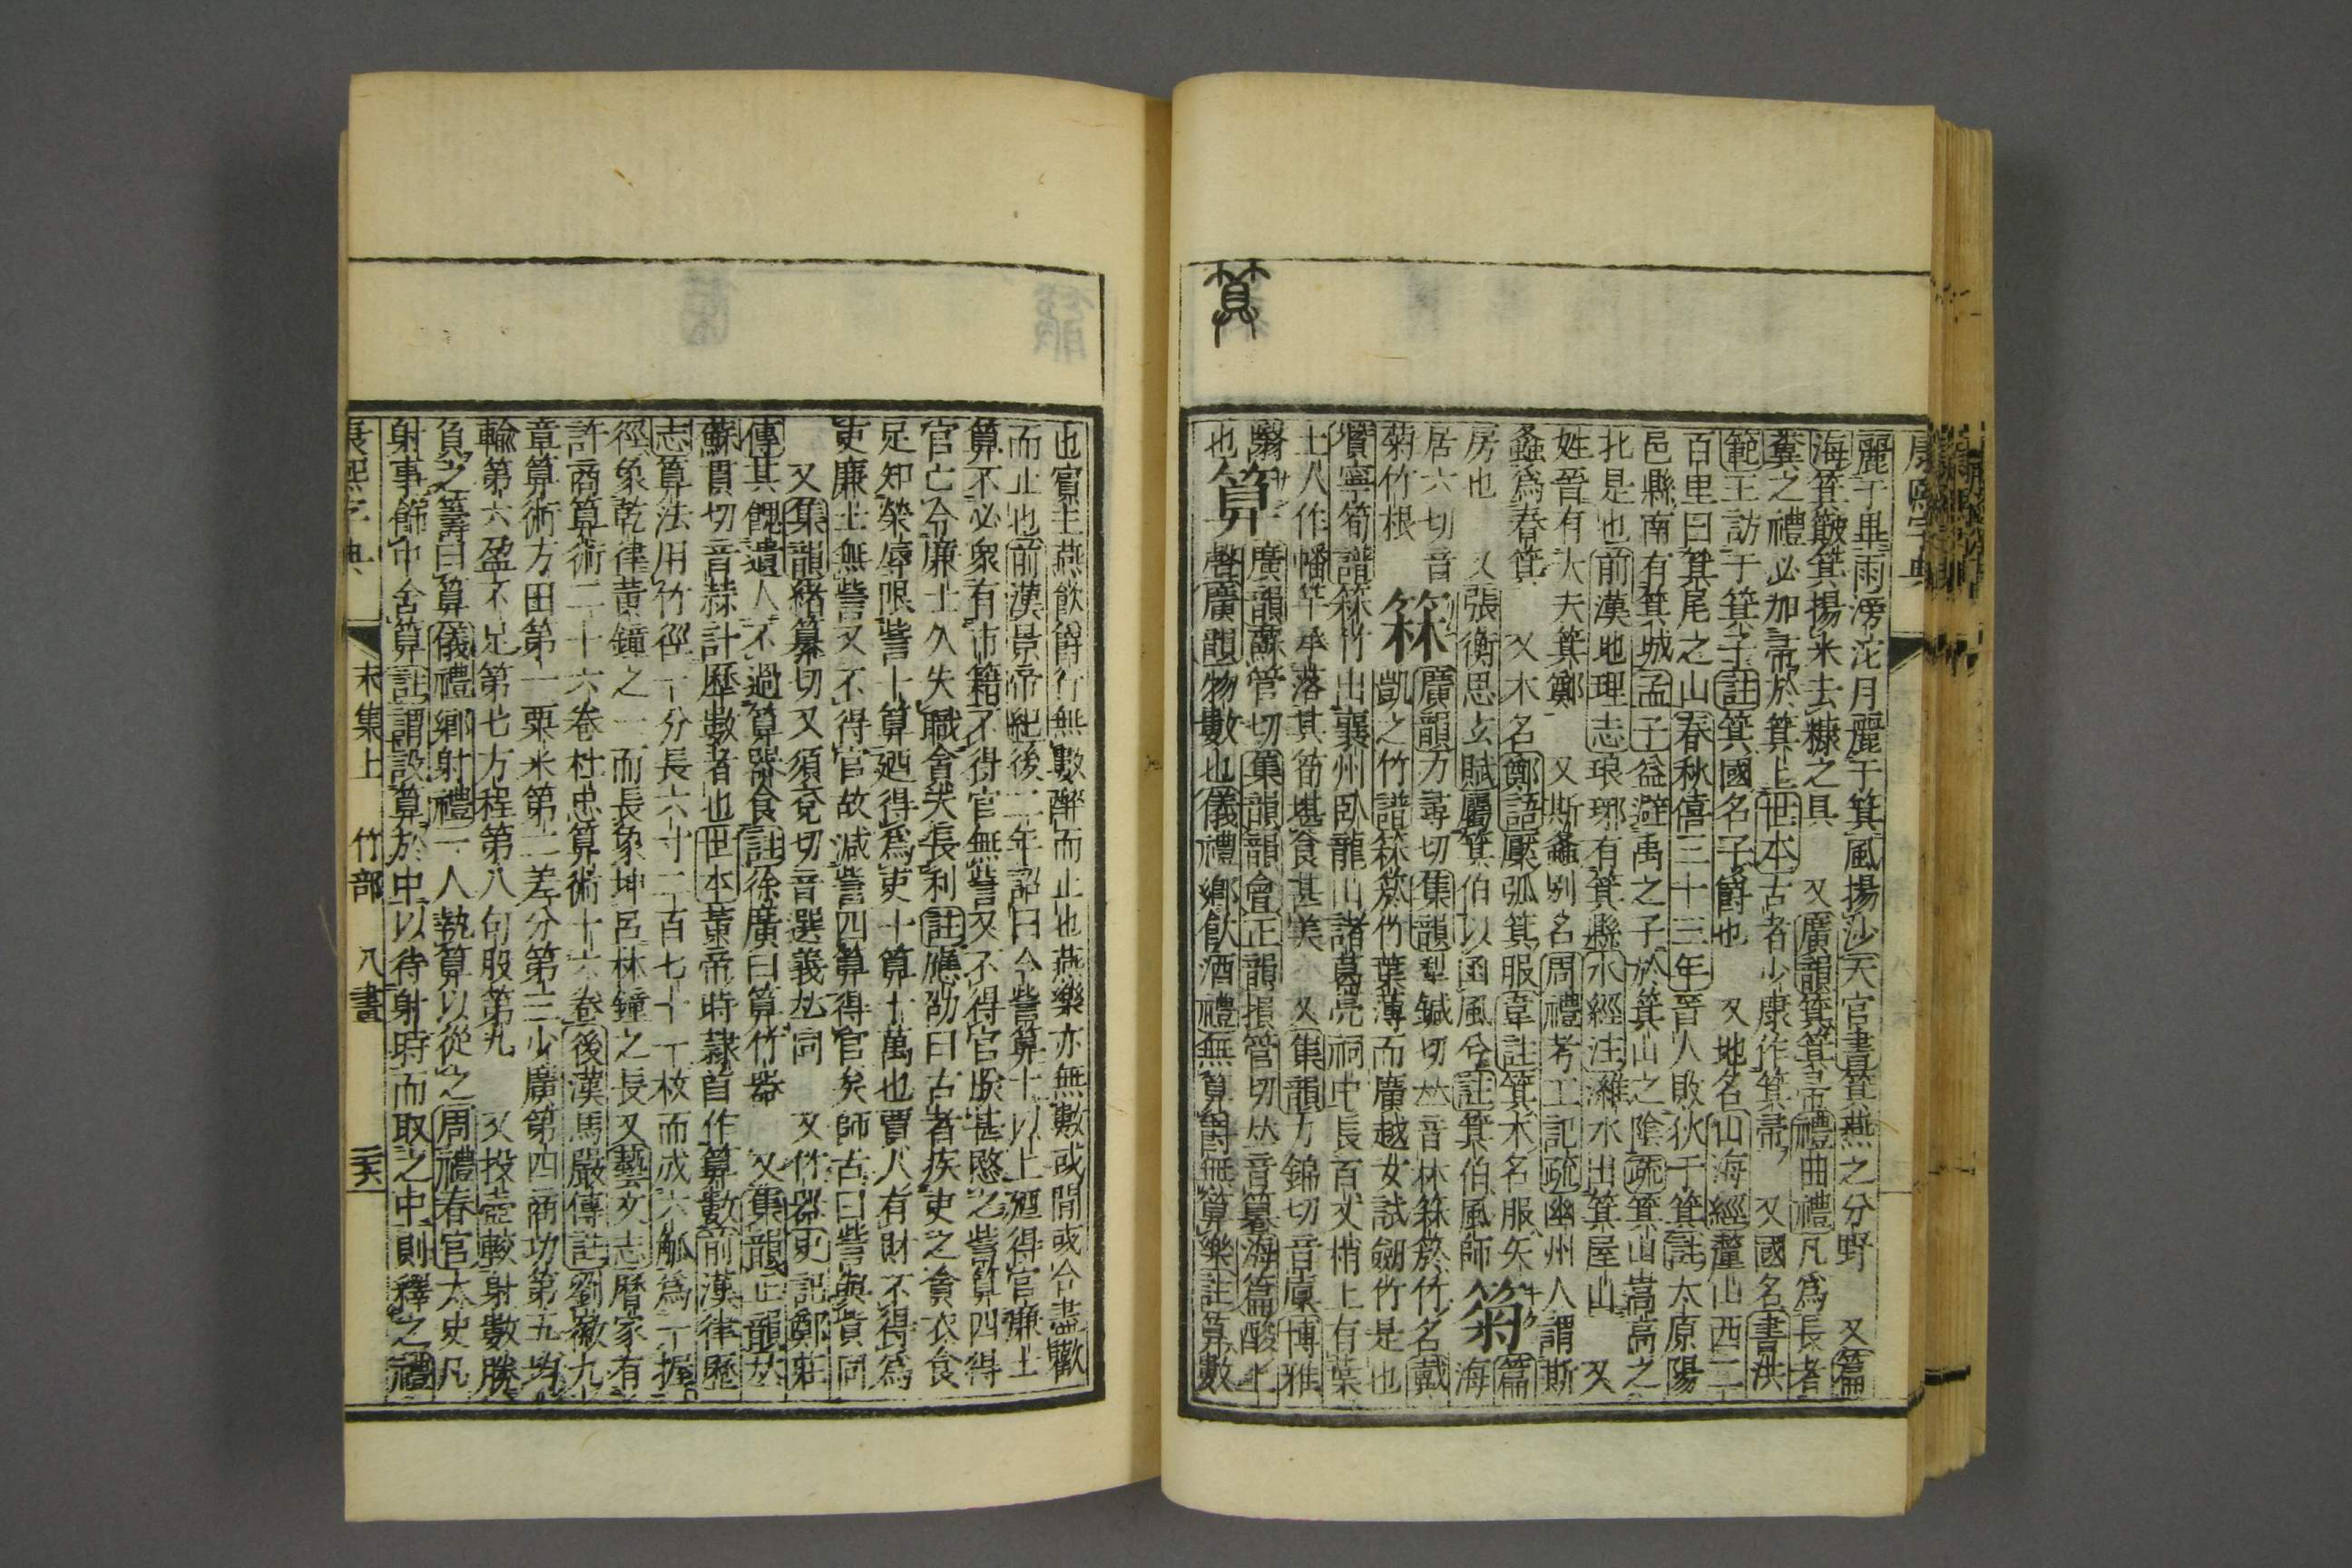 算
康熙字典
麗于畢雨滂沱月麗于箕風揚沙天官書箕燕之分野 又篇
海箕簸箕揚米去糠之具 又廣韻箕箒禮曲禮凡為長者
糞之禮必加帚於箕上世本古者少康作箕帚 又國名書洪
範王訪于箕子註箕國名子爵也 又地名山海經釐山西二
百里曰箕尾之山春秋僖三十三年晉人敗狄于箕註太原陽
邑縣南有箕城孟子益避禹之子於箕山之陰疏箕山嵩高之
北是也前漢地理志琅琊有箕縣水經注濰水出箕屋山 又
姓晉有大夫箕鄭 又斯螽別名周禮考工記疏幽州人謂斯
螽為舂箕 又木名鄭語檿弧箕服韋註箕木名服矢
房也 又張衡思玄賦屬箕伯以函風兮註箕伯風師 䈮 篇海
居六切音
菊竹根 箖 廣韻力尋切集韻犁鍼切𠀤音林箖箊竹名戴
凱之竹譜箖箊竹葉薄而廣越女試劒竹是也
贊寧筍譜箖竹出襄州臥龍山諸葛亮祠中長百丈梢上有葉
土人作幡竿承落其筍堪食甚美 又集韻方錦切音廩博雅
翳也 算 廣韻蘇管切集韻韻會正韻損管切𠀤音篹海篇酸上
聲廣韻物數也儀禮鄉飲酒禮無算爵無算樂註算數
也賓主燕飲爵行無數醉而止也燕樂亦無數或閒或合盡歡
而止也前漢景帝紀後二年詔曰今訾算十以上廼得官廉士
算不必衆有市籍不得官無訾又不得官朕甚愍之訾算四得
官亡令廉士久失職貪夫長利註應劭曰古者疾吏之貪衣食
足知榮辱限訾十算廼得爲吏十算十萬也賈人有財不得爲
吏廉士無訾又不得官故減訾四算得官矣師古曰訾與貲同
又集韻緒纂切又須兗切音選義𠀤同 又竹器史記鄭莊
傳其餽遺人不過算器食註徐廣曰算竹器 又集韻正韻𠀤
蘇貫切音蒜計歷數者也世本黃帝時隸首作算數前漢律歷
志算法用竹徑一分長六寸二百七十一枚而成六觚爲一握
徑象乾律黃鐘之一而長象坤呂林鐘之長又藝文志曆家有
許商算術二十六卷杜忠算術十六卷後漢馬嚴傳註劉徽九
章算術方田第一粟米第二差分第三少廣第四商功第五均
輸第六盈不足第七方程第八句股第九 又投壺較射數勝
負之籌曰算儀禮鄉射禮一人執算以從之周禮春官大史凡
射事飾中舍算註謂設算於中以待射時而取之中則釋之禮
康熙字典 未集上 竹部 八畫 二十六